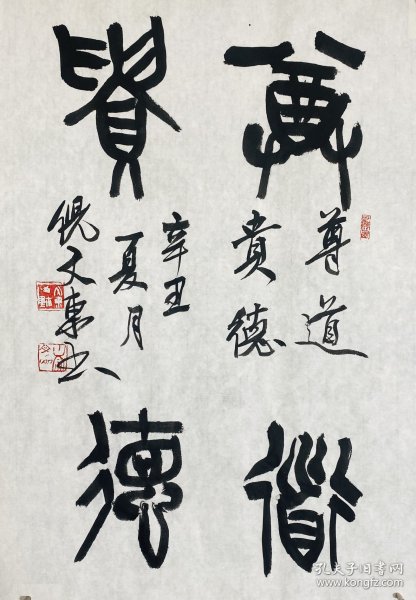 尊道
貴德
尊道
貴德
辛丑
夏月
倪文東書
孔夫子旧书网
www.kongfz.com